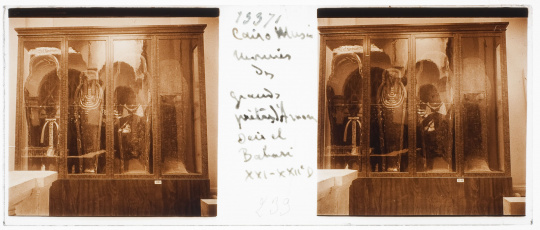 13371
Cairo Musée
momies
des
grands
prêtres d'Amon
Deir el
Bahari
XXI-XXIIe D
233